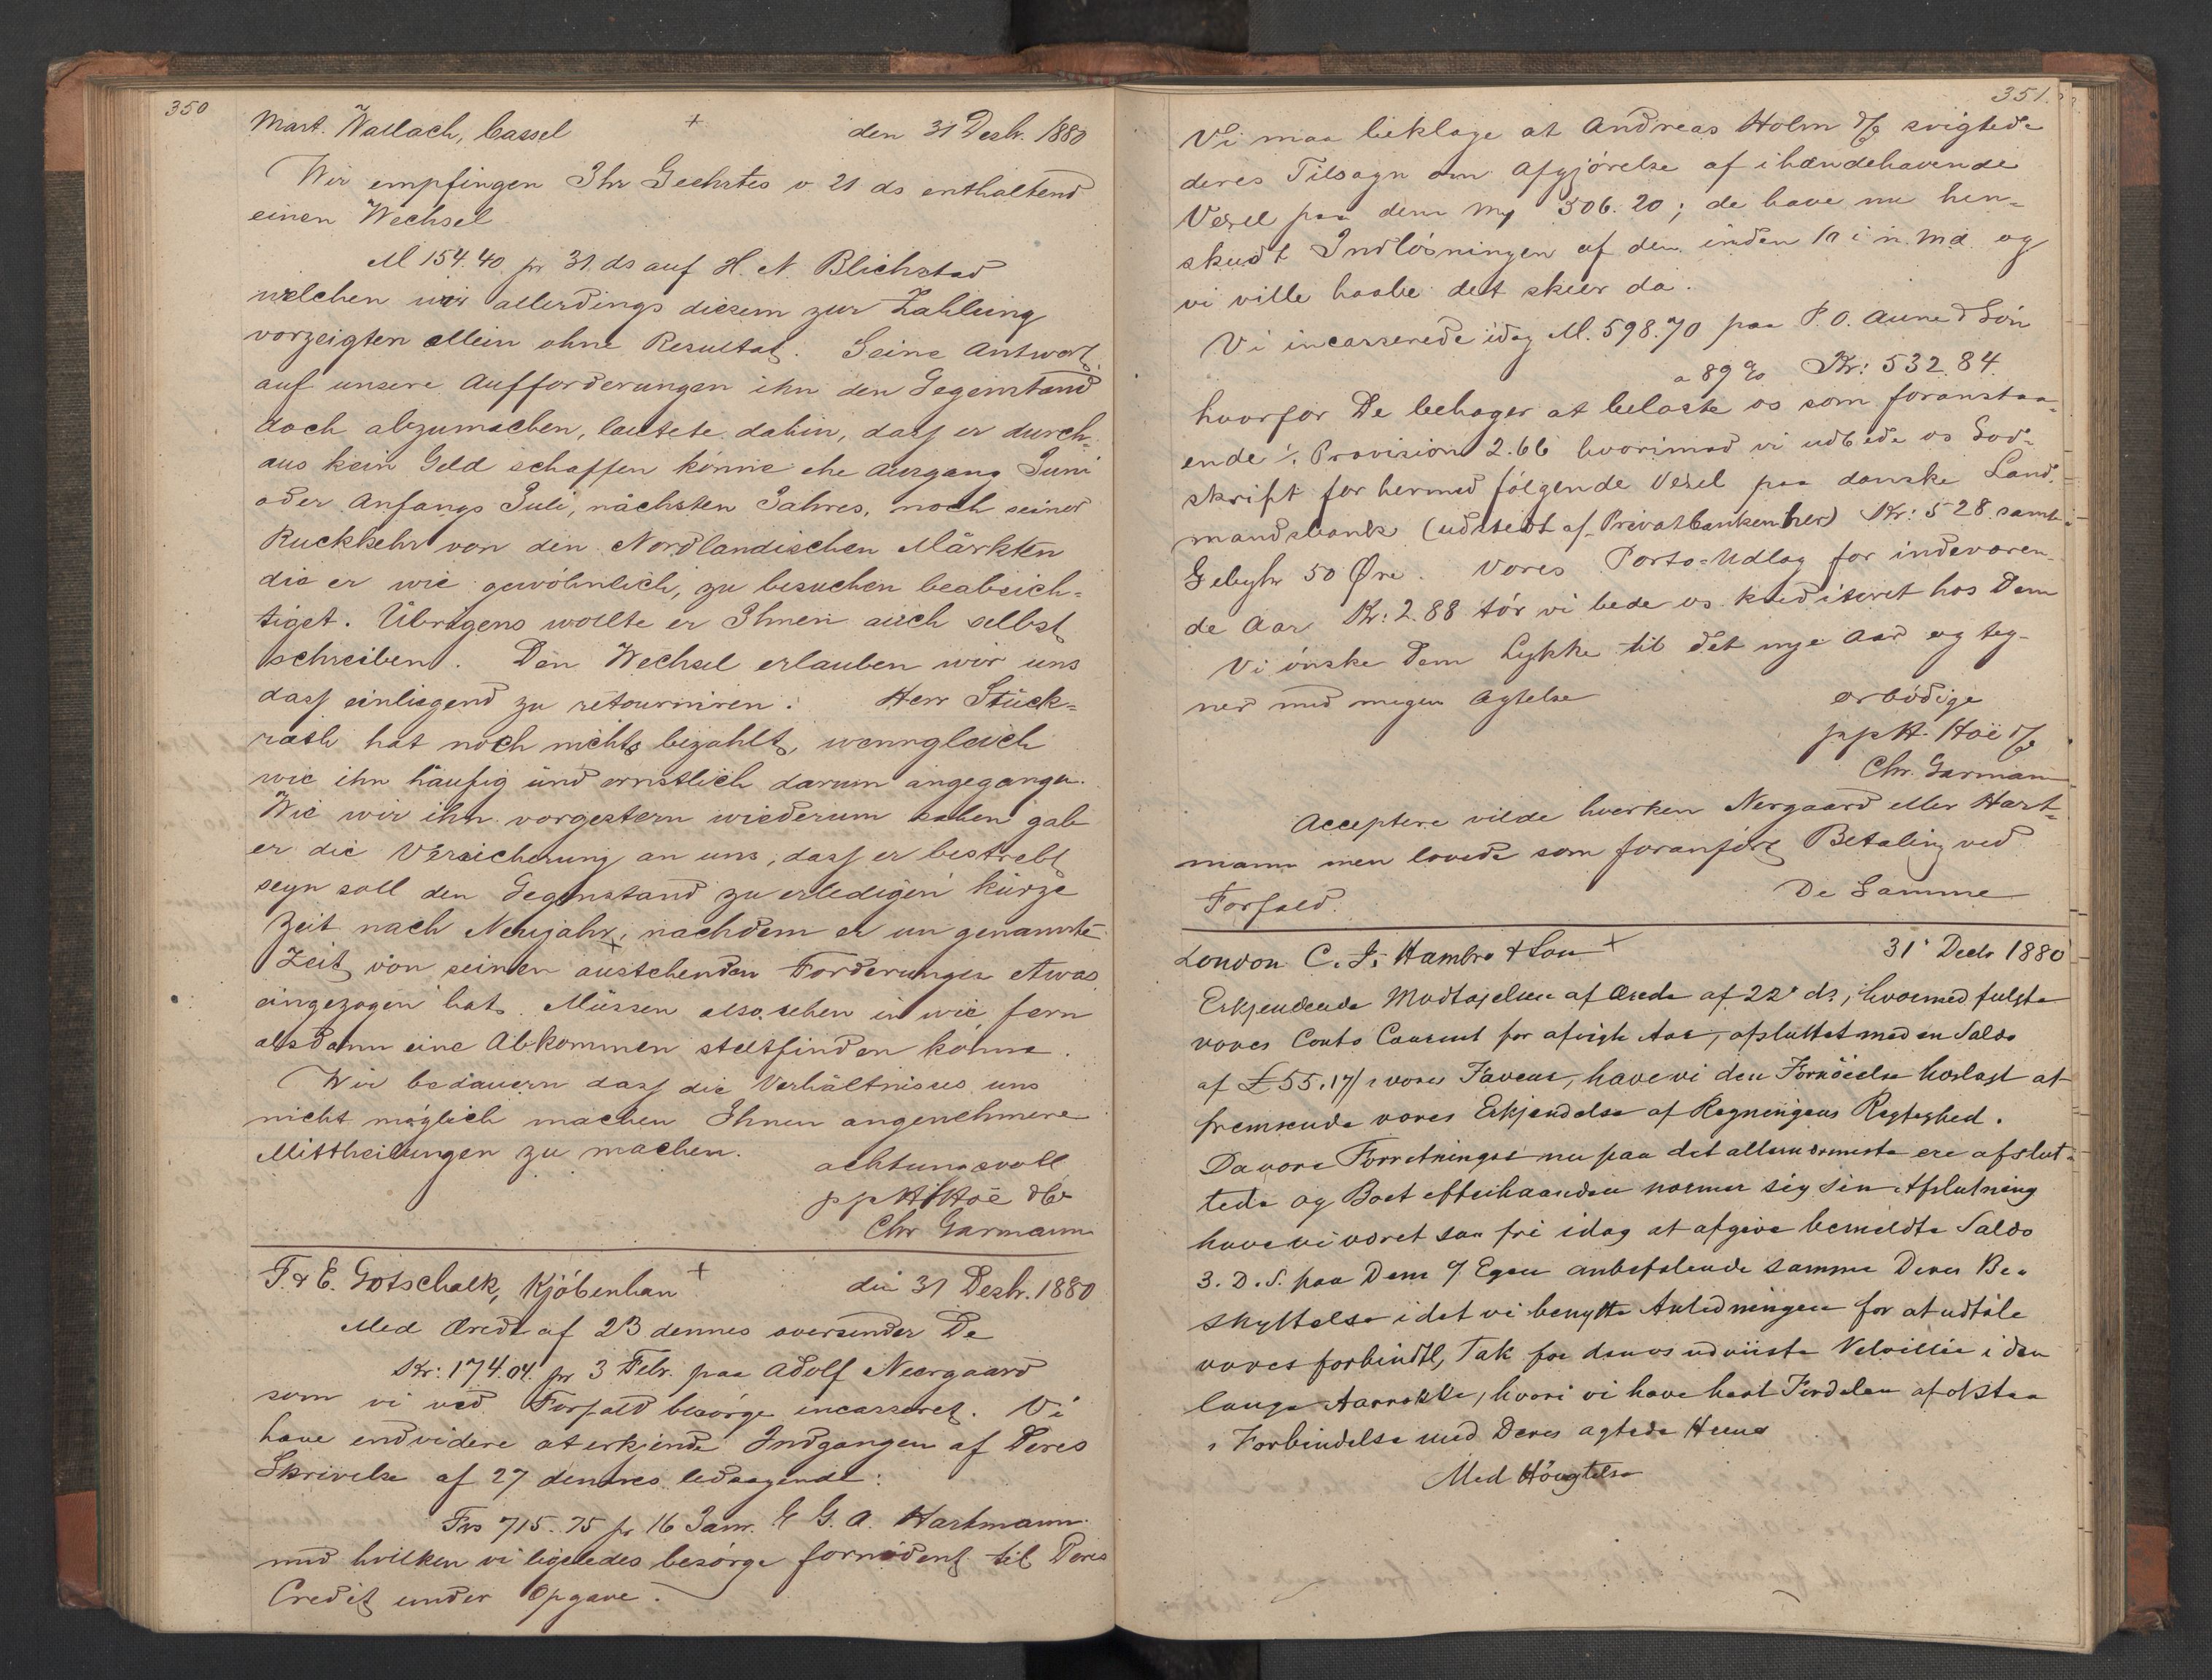 350
Mart. Wallach, Cassel + den 31 Desbr. 1880
Wir empfingen Ihr Geehrtes v 21 ds enthaltend
einen Wechsel
M 154.40 pr 31. ds auf H. N. Blichstad
welchen wir allerdings diesem zur Zahlung
vorzeigten allein ohne Resultat. Seine Antwort
auf unsere Aufforderungen ihn den Gegenstand
doch abzumachen, lautete dahin, dass er durch-
aus kein Geld schaffen könne ehe Ausgang Juni
oder Anfangs Juli, nächsten Jahres, nach seiner
Ruckkehr von den Nordlandischen Märkten
die er wie gewöhnlich, zu besuchen beabsich-
tiget. Übrigens wollte er Ihnen auch selbst
schreiben. Den Wechsel erlauben wir uns
dass einliegend zu retourniren. Herr Stück-
rath hat noch nichts bezahlt, wenngleich
wie ihn häufig und ernstlich darum angegangen.
Wie wir ihn vorgestern wiederum sahen gab
er die Versicherung an uns, dass er bestrebt
seyn soll den Gegenstand zu erledigen kurze
Zeit nach Neujahr, nachdem er un genannte
Zeit von seinen austehenden Forderungen etwas
eingezogen hat. Müssen also sehen in wie fern
alsdann eine Abkommen stattfinden könne.
Wir bedauern dass die Verhältnisse uns
nicht möglich machen Ihnen angenehmere
Mittheilungen zu machen.
achtungsvoll
pp H Høe & Co
Chr Garmann
F. & E. Gotschalk, Kjöbenhavn + den 31 Desbr. 1880
Med Æredt af 23 dennes oversender De
Kr: 174.04 pr 3 Febr. paa Adolf Neergaard
som vi ved Forfald besörge incasseret. Vi
have endvidere at erkjende Indgangen af Deres
Skrivelse af 27 dennes ledsagende:
Frs 715.75 pr 16 Janr. G. A. Hartmann
med hvilken vi ligeledes besörge fornödent til Deres
Credit under Opgave.
351.
Vi maa beklage at Andreas Holm & Co svigtede
deres Tilsagn om Afgjörelse af ihændehavende
Vexel paa dem 306.20; de have nu hen-
skudt Indlösningen af den inden i n. Md. og
vi ville haabe det skeer da.
Vi incasserede idag M. 598.70 paa P. O. Aune & Sön
a 89 % Kr: 532.84.
hvorfor De behager at belaste os som foranstaa-
ende ./. Provision 2.66 hvorimod vi udbede os God-
skrift for hermed fölgende Vexel paa danske Land-
mandsbank (udstedt af Privatbanken her) Kr: 528 samt
Gebyhr 50 Øre. Vores Porto-Udlag for indeværen-
de Aar Kr: 2.88 tör vi bede os krediteret hos Dem
Vi önske Dem Lykke til det nye Aar og teg-
ner med megen Agtelse
ærbödige
pp H. Höe & Co
Chr. Garmann
Acceptere vilde hverken Nergaard eller Hart-
mann men lovede som foranfört Betaling ved
Forfald. De Samme
London C. J. Hambro & Son + 31 Decbr 1880
Erkjendende Modtagelsen af Ærede af 22 ds, hvormed fulgte
vores Conto Courant for afvigte Aar, afsluttet med en Saldo
af £ 55.17/ i vores Faveur, have vi den Fornöielse herlagt at
fremsende vores Erkjendelse af Regningens Rigtighed.
Da vore Forretninger nu paa det allernærmeste ere afslut-
tede og Boet efterhaanden nærmer sig sin Afslutning
have vi været saa fri idag at afgive bemeldte Saldo
3. D. S. paa Dem Egen anbefalende samme Deres Be-
skyttelse idet vi benytte Anledningen for at udtale
vores forbindtl, Tak for den os udviiste Velvillie i den
lange Aarrække, hvori vi have havt Fordelen af at staa
i Forbindelse med Deres agtede Huus
Med Höiagtelse